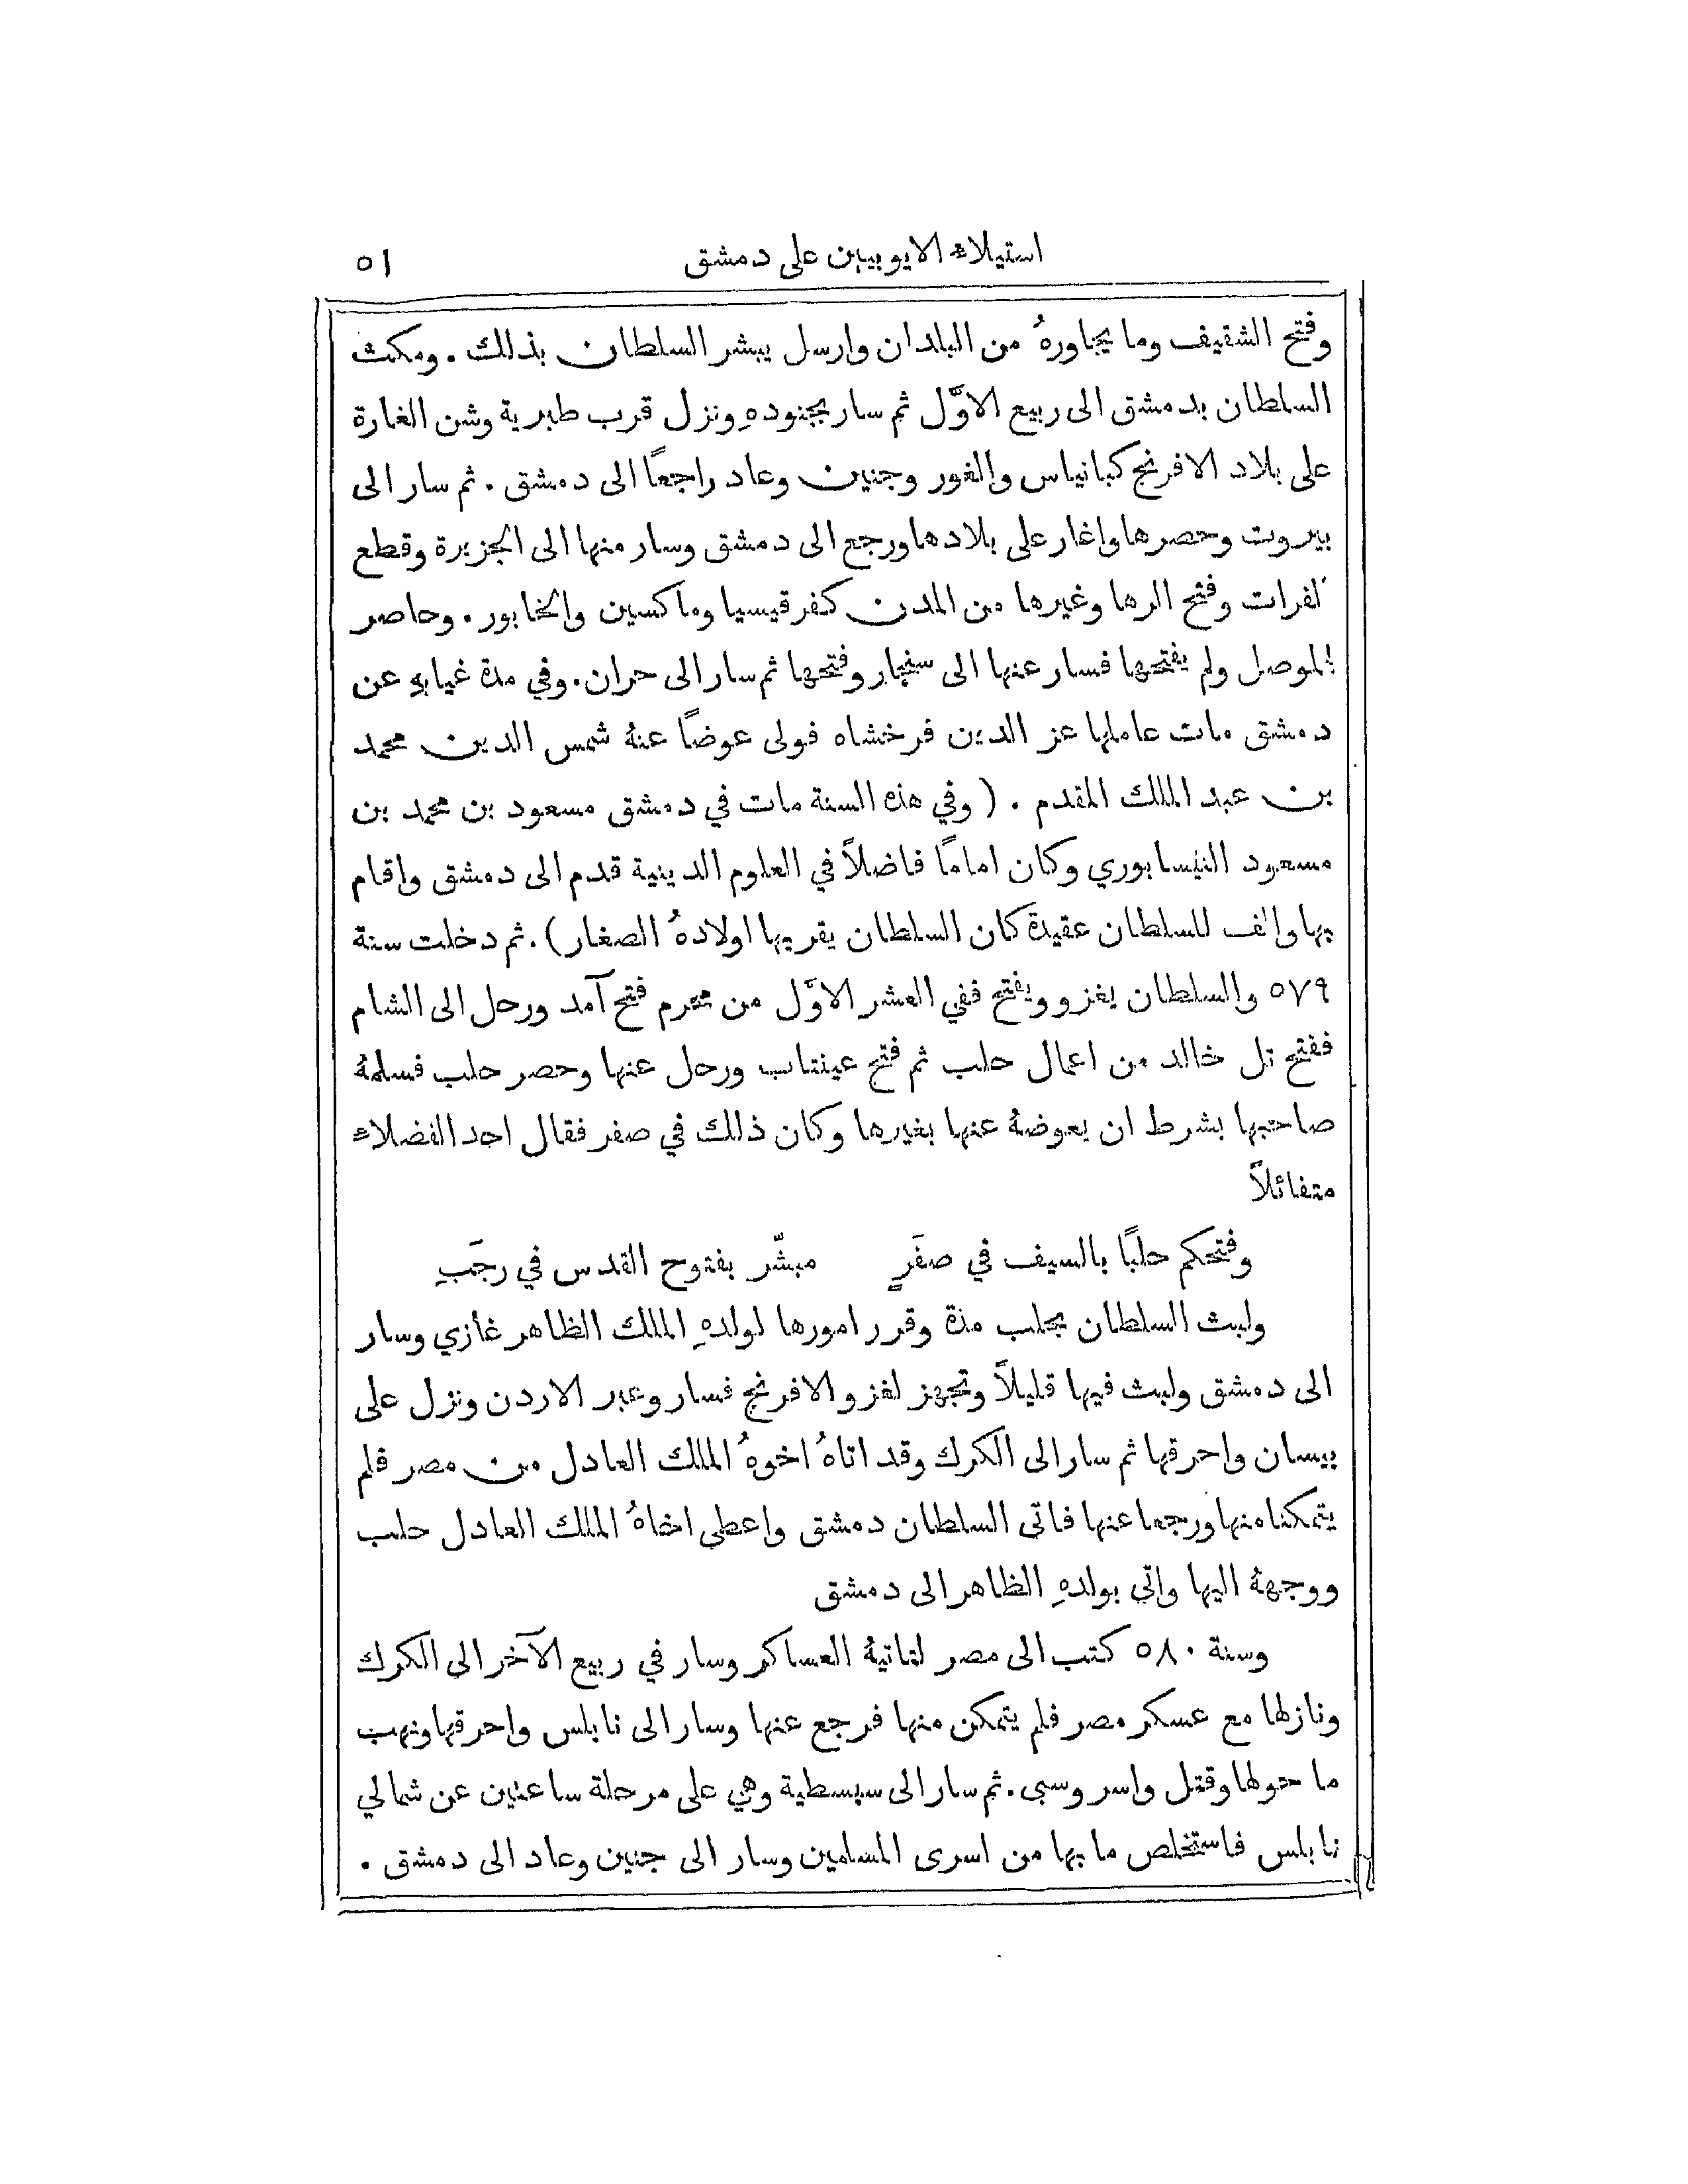 استيلاء الايوبيين على دمشق ٥١
وفتح الشقيف وما يجاورهُ من البلدان وارسل يبشر السلطان بذلك . ومكث
السلطان بدمشق الى ربيع الاوَّل ثم سار بجنودهِ ونزل قرب طبرية وشن الغارة
على بلاد الافرنج كبانياس والغور وجنين وعاد راجعًا الى دمشق . ثم سار الى
بيروت وحصرها واغار على بلادها ورجع الى دمشق وسار منها الى الجزيرة وقطع
الفرات وفتح الرها وغيرها من المدن كفرقيسيا وماكسين والخابور . وحاصر
الموصل ولم يفتحها فسار عنها الى سنجار وفتحها ثم سار الى حران . وفي مدة غيابهِ عن
دمشق مات عاملها عز الدين فرخشاه فولى عوضًا عنهُ شمس الدين محمد
بن عبد الملك المقدم . ( وفي هذه السنة مات في دمشق مسعود بن محمد بن
مسعود النيسابوري وكان امامًا فاضلاً في العلوم الدينية قدم الى دمشق واقام
بها والف للسلطان عقيدة كان السلطان يقريها اولادهُ الصغار) . ثم دخلت سنة
٥٧٩ والسلطان يغزو ويفتح ففي العشر الاوَّل من محرم فتح آمد ورحل الى الشام
ففتح تل خالد من اعمال حلب ثم فتح عينتاب ورحل عنها وحصر حلب فسلمهُ
صاحبها بشرط ان يعوضهُ عنها بغيرها وكان ذلك في صفر فقال احد الفضلاء
متفائلاً
وفتحكم حلبًا بالسيف في صفَرٍ مبشّر بفتوح القدس في رجَبِ
ولبث السلطان بحلب مدة وقرر امورها لولدهِ الملك الظاهر غازي وسار
الى دمشق ولبث فيها قليلاً وتجهز لغزو الافرنج فسار وعبر الاردن ونزل على
بيسان واحرقها ثم سار الى الكرك وقد اتاهُ اخوهُ الملك العادل من مصر فلم
يتمكنا منها ورجعا عنها فاتى السلطان دمشق واعطى اخاهُ الملك العادل حلب
ووجههُ اليها واتى بولدهِ الظاهر الى دمشق
وسنة ٥٨٠ كتب الى مصر لتاتيهُ العساكر وسار في ربيع الآخر الى الكرك
ونازلها مع عسكر مصر فلم يتمكن منها فرجع عنها وسار الى نابلس واحرقها ونهب
ما حولها وقتل واسر وسبى . ثم سار الى سبسطية وهي على مرحلة ساعتين عن شمالي
نابلس فاستخلص ما بها من اسرى المسلمين وسار الى جنين وعاد الى دمشق .